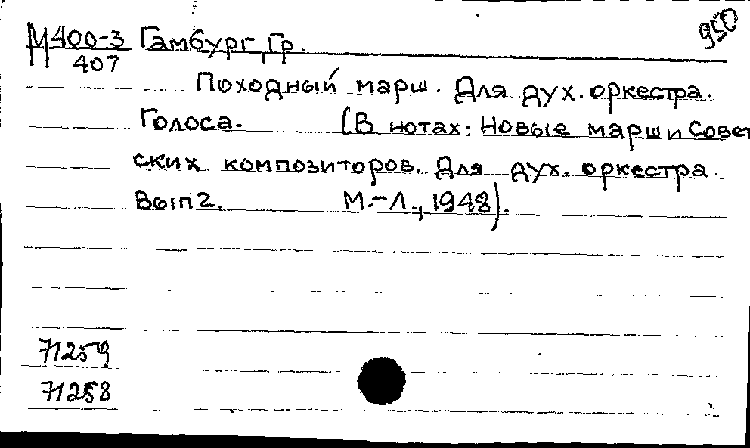 950
М400-3 Гамбург, Гр.
407
Походный марш. Для дух. оркестра.
Голоса. (В нотах: Новые марши Совет
ских композиторов. Для дух. оркестра.
Вып 2. М.-Л., 1948).
71259
71258